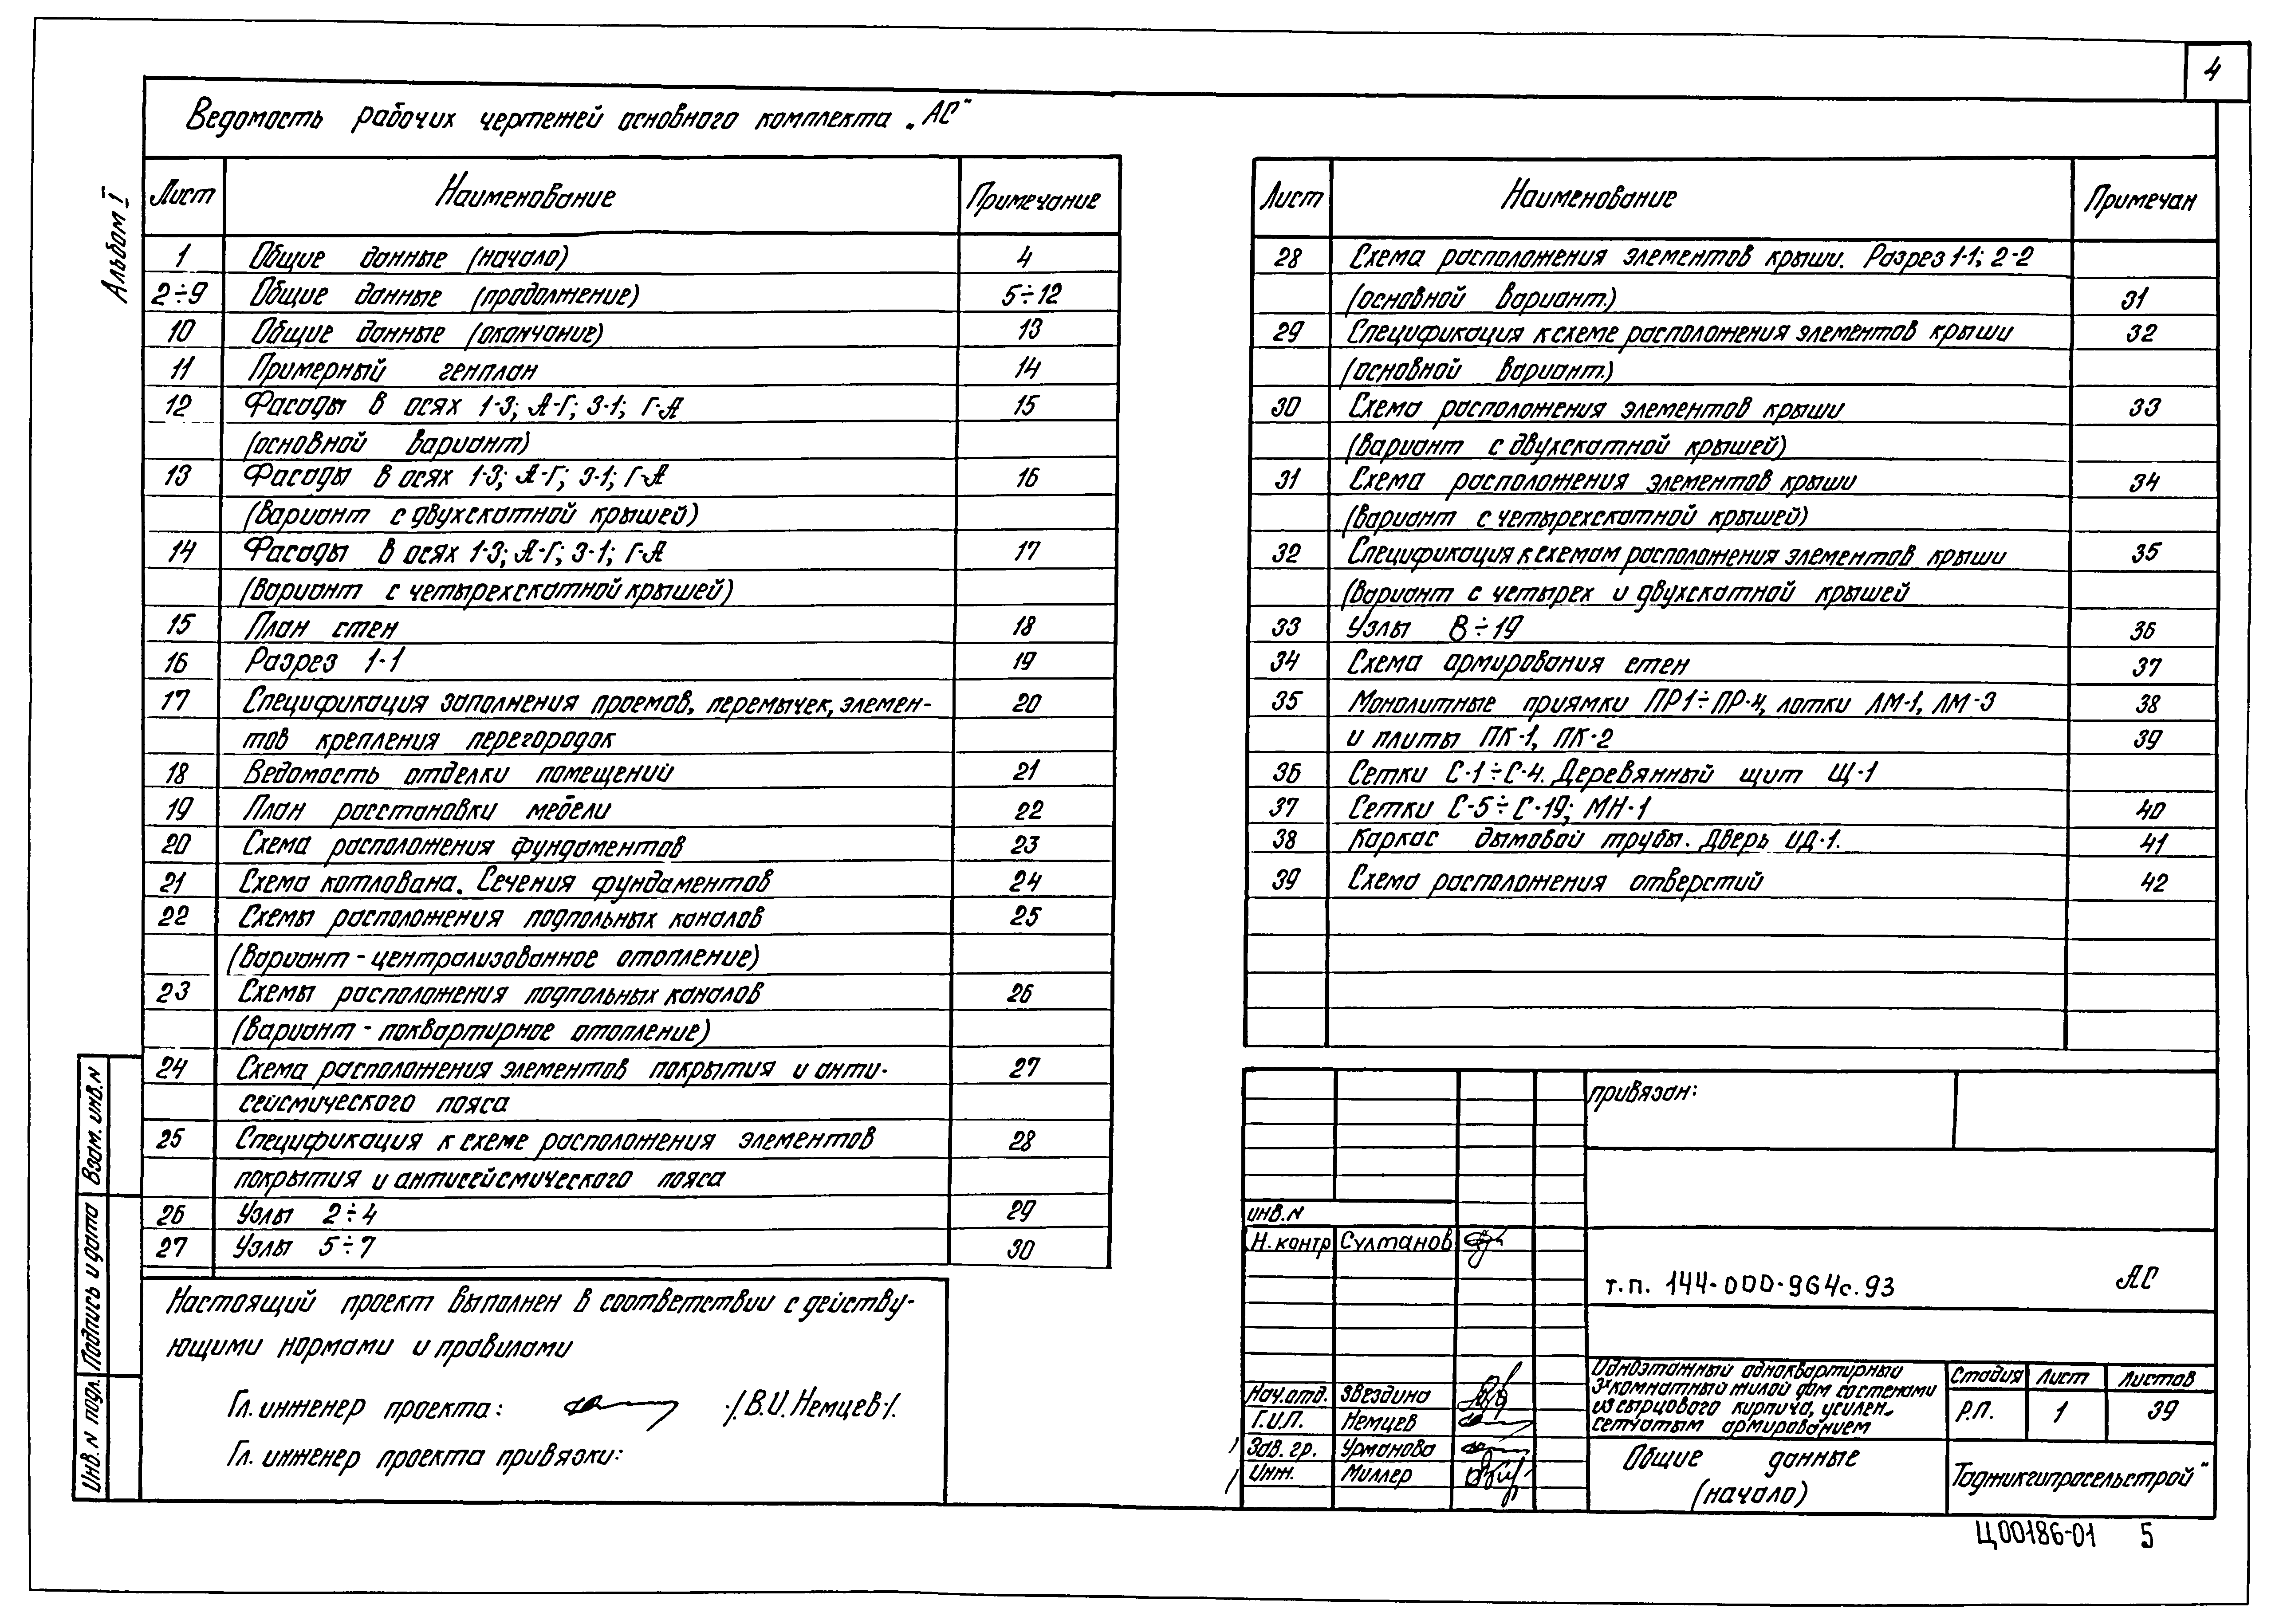 4
Ведомость рабочих чертежей основного комплекта „АС"
Альбом I
Лист Наименование Примечание
1 Общие данные (начало) 4
2÷9 Общие данные (продолжение) 5÷12
10 Общие данные (окончание) 13
11 Примерный генплан 14
12 Фасады в осях 1-3; А-Г; 3-1; Г-А 15
(основной вариант)
13 Фасады в осях 1-3; А-Г; 3-1; Г-А 16
(вариант с двухскатной крышей)
14 Фасады в осях 1-3; А-Г; 3-1; Г-А 17
(вариант с четырехскатной крышей)
15 План стен 18
16 Разрез 1-1 19
17 Спецификация заполнения проемов, перемычек, элемен- 20
тов крепления перегородок
18 Ведомость отделки помещений 21
19 План расстановки мебели 22
20 Схема расположения фундаментов 23
21 Схема котлована. Сечения фундаментов 24
22 Схемы расположения подпольных каналов 25
(Вариант - централизованное отопление)
23 Схемы расположения подпольных каналов 26
(Вариант - поквартирное отопление)
24 Схема расположения элементов покрытия и анти- 27
сейсмического пояса
25 Спецификация к схеме расположения элементов 28
покрытия и антисейсмического пояса
26 Узлы 2÷4 29
27 Узлы 5÷7 30
Лист Наименование Примечан
28 Схема расположения элементов крыши. Разрез 1-1; 2-2
(основной вариант.) 31
29 Спецификация к схеме расположения элементов крыши 32
(основной вариант.)
30 Схема расположения элементов крыши 33
(вариант с двухскатной крышей)
31 Схема расположения элементов крыши 34
(вариант с четырехскатной крышей)
32 Спецификация к схемам расположения элементов крыши 35
(вариант с четырех и двухскатной крышей
33 Узлы 8÷19 36
34 Схема армирования стен 37
35 Монолитные приямки ПР1÷ПР-4, лотки ЛМ-1, ЛМ-3 38
и плиты ПК-1, ПК-2 39
36 Сетки С-1÷С-4. Деревянный щит Щ-1
37 Сетки С-5÷С-19; МН-1 40
38 Каркас дымовой трубы. Дверь ИД-1. 41
39 Схема расположения отверстий 42
Настоящий проект выполнен в соответствии с действу-
ющими нормами и правилами
Гл. инженер проекта: /.В.И.Немцев./.
Гл. инженер проекта привязки:
Взам. инв.N
Подпись и дата
Инв. N подл.
привязан:
инв.N
Н.контр Султанов
т.п. 144-000-964с.93 АС
Нач.отд. Звездина
Г.И.П. Немцев
Зав. гр. Урманова
Инж. Миллер
Одноэтажный одноквартирный
3х комнатный жилой дом со стенами
из сырцового кирпича, усилен.
сетчатым армированием
Стадия Лист Листов
Р.П. 1 39
Общие данные
(начало)
Таджикгипросельстрой"
Ц00186-01 5